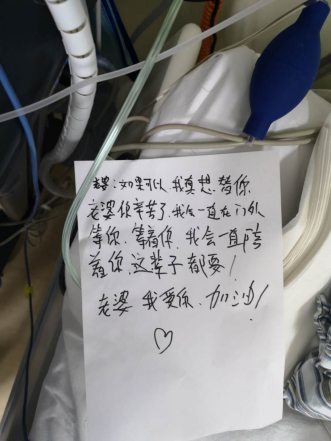 老婆：如果可以，我真想替你
老婆你辛苦了，我会一直在门外
等你，等着你，我会一直陪
着你，这辈子都要！
老婆 我爱你，加油！